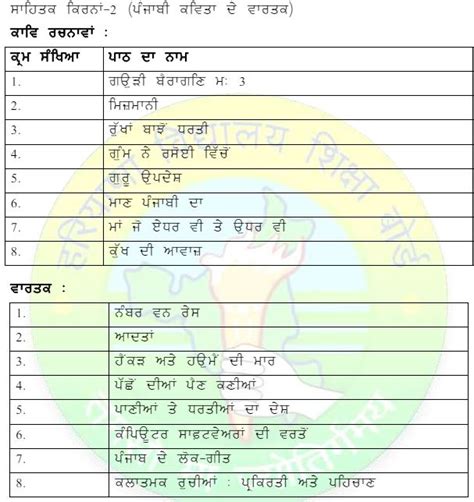 ਸਾਹਿਤਕ ਕਿਰਨਾਂ-2 (ਪੰਜਾਬੀ ਕਵਿਤਾ ਦੇ ਵਾਰਤਕ)
ਕਾਵਿ ਰਚਨਾਵਾਂ :
ਕ੍ਰਮ ਸੰਖਿਆ ਪਾਠ ਦਾ ਨਾਮ
1. ਗਉੜੀ ਬੈਰਾਗਣਿ ਮਃ 3
2. ਮਿਜ਼ਮਾਨੀ
3. ਰੁੱਖਾਂ ਬਾਝੋਂ ਧਰਤੀ
4. ਗੁੰਮ ਨੇ ਰਸੋਈ ਵਿੱਚੋਂ
5. ਗੁਰੂ ਉਪਦੇਸ਼
6. ਮਾਣ ਪੰਜਾਬੀ ਦਾ
7. ਮਾਂ ਜੋ ਏਧਰ ਵੀ ਤੇ ਉਧਰ ਵੀ
8. ਕੁੱਖ ਦੀ ਆਵਾਜ਼
ਵਾਰਤਕ :
1. ਨੰਬਰ ਵਨ ਰੇਸ
2. ਆਦਤਾਂ
3. ਹੰਕੜ ਅਤੇ ਹਉਮੈਂ ਦੀ ਮਾਰ
4. ਪੱਛੋਂ ਦੀਆਂ ਪੈਣ ਕਣੀਆਂ
5. ਪਾਣੀਆਂ ਤੇ ਧਰਤੀਆਂ ਦਾ ਦੇਸ਼
6. ਕੰਪਿਊਟਰ ਸਾਫ਼ਟਵੇਅਰਾਂ ਦੀ ਵਰਤੋਂ
7. ਪੰਜਾਬ ਦੇ ਲੋਕ-ਗੀਤ
8. ਕਲਾਤਮਕ ਰੁਚੀਆਂ : ਪ੍ਰਕਿਰਤੀ ਅਤੇ ਪਹਿਚਾਣ
हरियाणा विद्यालय शिक्षा बोर्ड